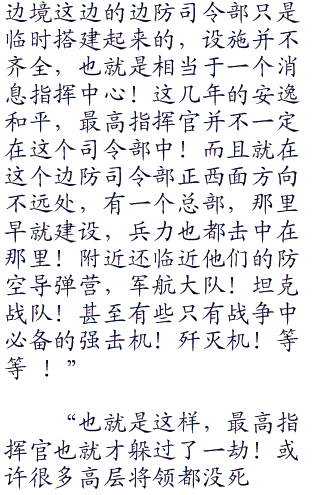 边境这边的边防司令部只是
临时搭建起来的，设施并不
齐全，也就是相当于一个消
息指挥中心！这几年的安逸
和平，最高指挥官并不一定
在这个司令部中！而且就在
这个边防司令部正西面方向
不远处，有一个总部，那里
早就建设，兵力也都击中在
那里！附近还临近他们的防
空导弹营，军航大队！坦克
战队！甚至有些只有战争中
必备的强击机！歼灭机！等
等 ！”
“也就是这样，最高指
挥官也就才躲过了一劫！或
许很多高层将领都没死